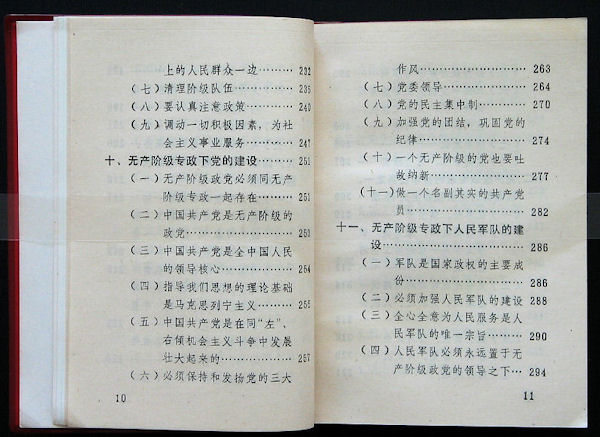 上的人民群众一边………… 232
(七) 清理阶级队伍………… 235
(八) 要认真注意政策………… 240
(九) 调动一切积极因素，为社
会主义事业服务………… 247
十、无产阶级专政下党的建设………… 251
(一) 无产阶级政党必须同无产
阶级专政一起存在………… 251
(二) 中国共产党是无产阶级的
政党………… 251
(三) 中国共产党是全中国人民
的领导核心………… 254
(四) 指导我们思想的理论基础
是马克思列宁主义………… 255
(五) 中国共产党是在同“左”、
右倾机会主义斗争中发展
壮大起来的………… 257
(六) 必须保持和发扬党的三大
10
作风………… 263
(七) 党委领导………… 264
(八) 党的民主集中制………… 270
(九) 加强党的团结，巩固党的
纪律………… 274
(十) 一个无产阶级的党也要吐
故纳新………… 277
(十一) 做一个名副其实的共产党
员………… 282
十一、无产阶级专政下人民军队的建
设………… 286
(一) 军队是国家政权的主要成
份………… 286
(二) 必须加强人民军队的建设 288
(三) 全心全意为人民服务是人
民军队的唯一宗旨………… 290
(四) 人民军队必须永远置于无
产阶级政党的领导之下… 294
11